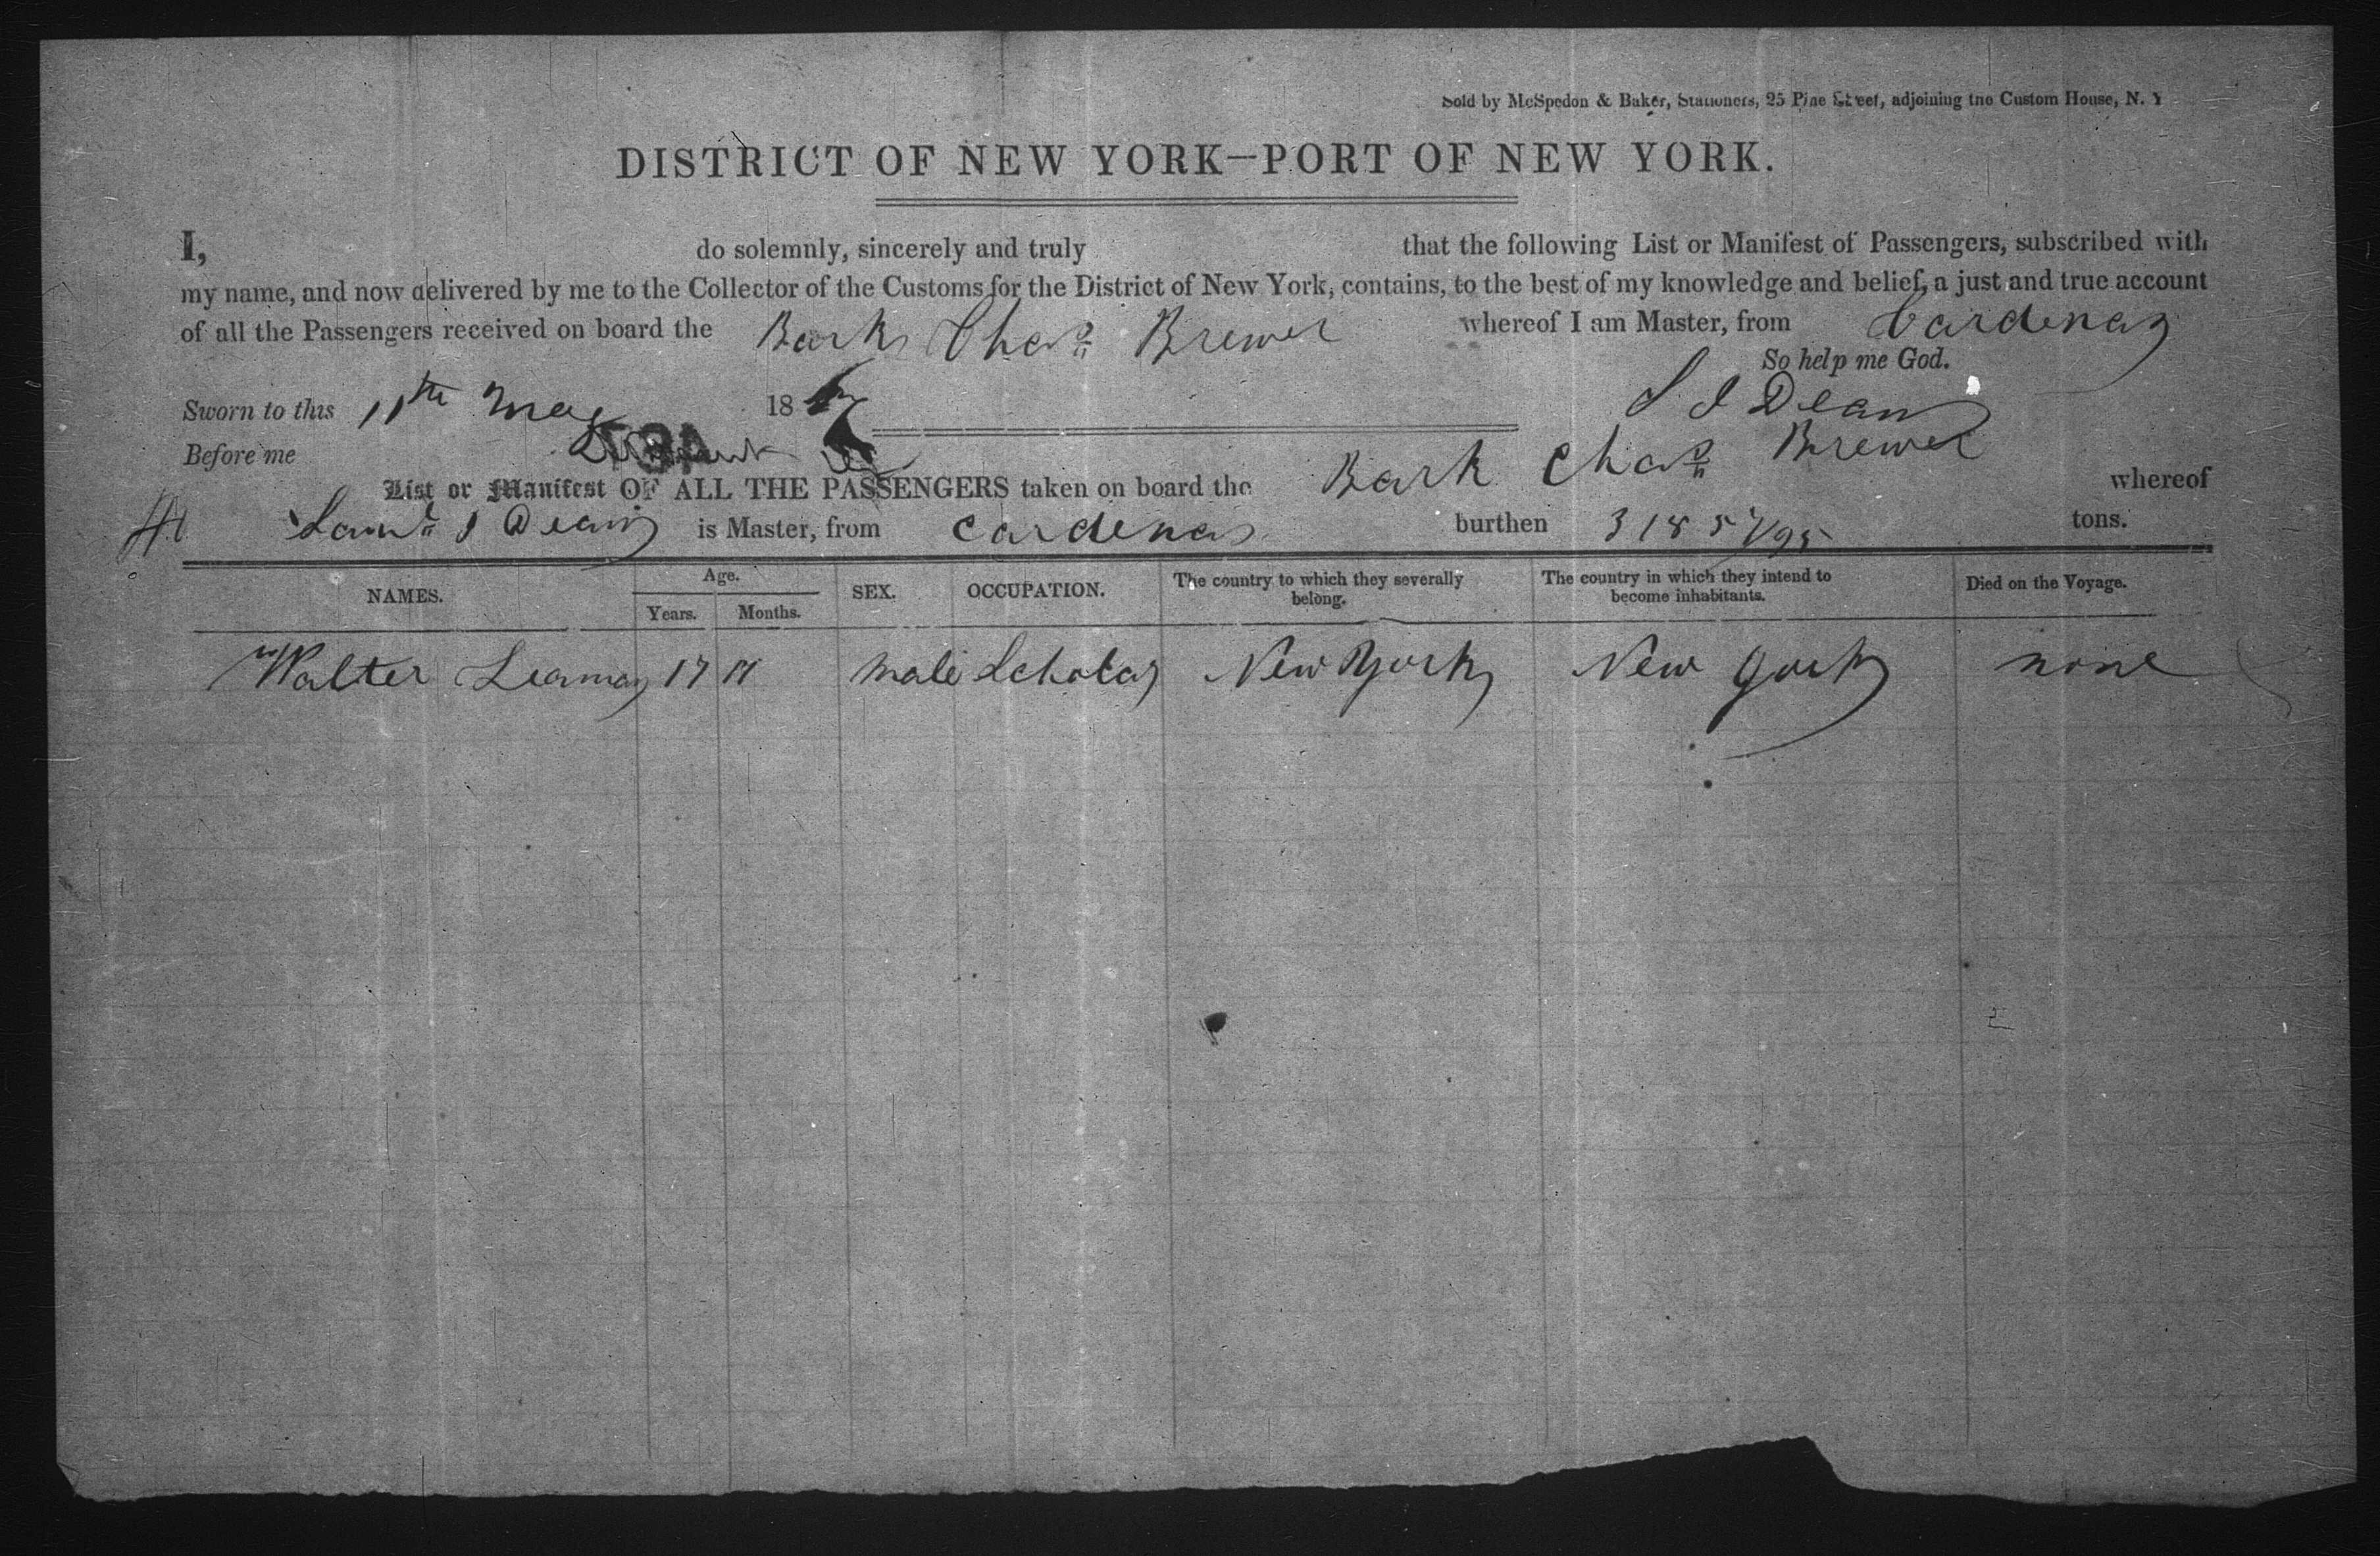 Sold by McSpedon & Baker, Stationers, 25 Pine Street, adjoining the Custom House, N. Y
DISTRICT OF NEW YORK—PORT OF NEW YORK.
I, do solemnly, sincerely and truly that the following List or Manifest of Passengers, subscribed with
my name, and now delivered by me to the Collector of the Customs for the District of New York, contains, to the best of my knowledge and belief, a just and true account
of all the Passengers received on board the Bark Chas Brewer whereof I am Master, from Cardenas
So help me God.
Sworn to this 11th May 18
S I Dean
Before me
List or Manifest OF ALL THE PASSENGERS taken on board the Bark Chas Brewer whereof
Saml I Dean is Master, from Cardenas burthen 318 57/95 tons.
NAMES. Age. Years. Months. SEX. OCCUPATION. The country to which they severally belong. The country in which they intend to become inhabitants. Died on the Voyage.
Walter 17 11 Male Scholar New York New York none